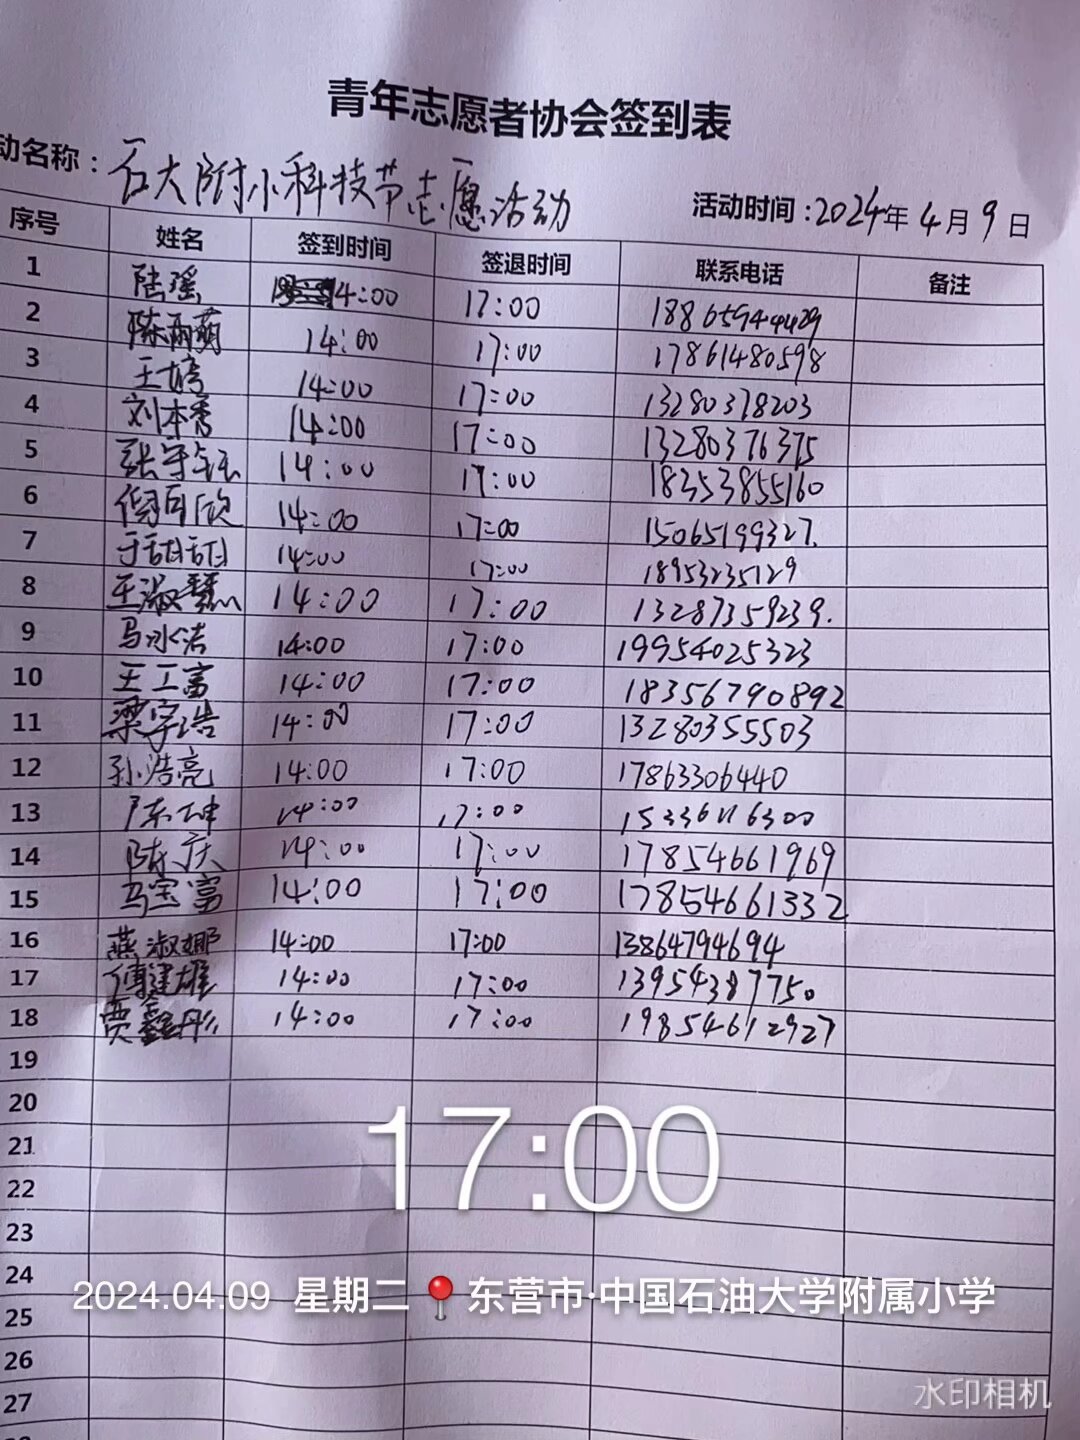 青年志愿者协会签到表
动名称：石大附小科技节志愿活动 活动时间：2024年4月9日
序号 姓名 签到时间 签退时间 联系电话 备注
1 陆瑶 14:00 17:00 18865944429
2 陈雨萌 14:00 17:00 17861480598
3 王婷 14:00 17:00 13280378203
4 刘本秀 14:00 17:00 13280376375
5 张宇钰 14:00 17:00 18353855160
6 倪可欣 14:00 17:00 15065199327.
7 于甜甜 14:00 17:00 18953235129
8 王淑慧 14:00 17:00 13287359239.
9 马冰洁 14:00 17:00 19954025323
10 王工富 14:00 17:00 18356790892
11 梁宇浩 14:00 17:00 13280355503
12 孙浩亮 14:00 17:00 17863306440
13 陈坤 14:00 17:00
14 陈庆 14:00 17:00 17854661969
15 马宝富 14:00 17:00 17854661332
16 燕淑娜 14:00 17:00 13864794694
17 傅建雄 14:00 17:00 13954387750
18 贾鑫彤 14:00 17:00 19854612927
19
20
17:00
21
22
23
24
2024.04.09 星期二 东营市·中国石油大学附属小学
25
26
水印相机
27